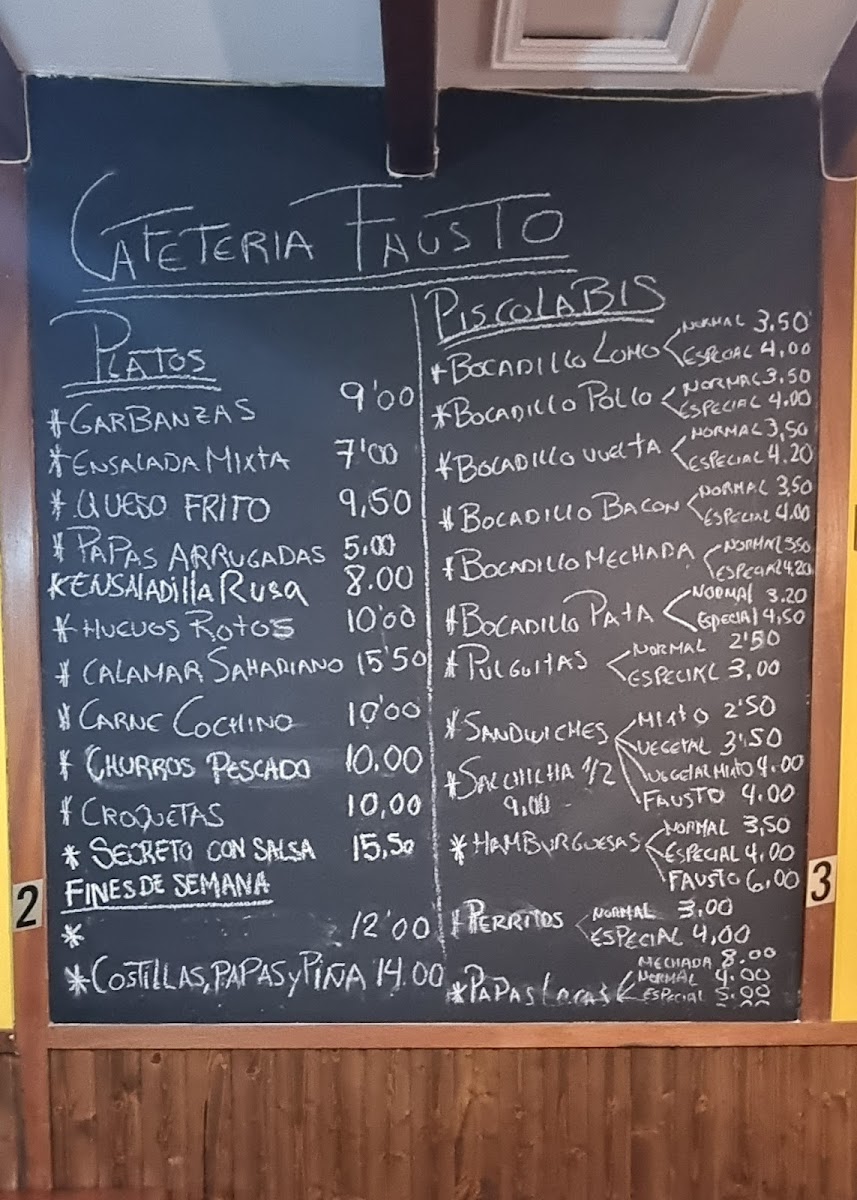 CAFETERIA FAUSTO
PLATOS
* GARBANZAS 9'00
* ENSALADA MIXTA 7'00
* QUESO FRITO 9,50
* PAPAS ARRUGADAS 5.00
* ENSALADILLA RUSA 8.00
* HUEVOS ROTOS 10'00
* CALAMAR SAHARIANO 15'50
* CARNE COCHINO 10'00
* CHURROS PESCADO 10.00
* CROQUETAS 10,00
* SECRETO CON SALSA 15,50
FINES DE SEMANA
* 12'00
* COSTILLAS, PAPAS y PIÑA 14.00
PISCOLABIS
* BOCADILLO LOMO NORMAL 3.50
ESPECIAL 4,00
* BOCADILLO POLLO NORMAL 3.50
ESPECIAL 4.00
* BOCADILLO VUELTA NORMAL 3,50
ESPECIAL 4.20
* BOCADILLO BACON NORMAL 3,50
ESPECIAL 4.00
* BOCADILLO MECHADA NORMAL 3.50
ESPECIAL 4.20
* BOCADILLO PATA NORMAL 3.20
ESPECIAL 4,50
* PULGUITAS NORMAL 2'50
ESPECIAL 3,00
* SANDWICHES MIXTO 2'50
VEGETAL 3'50
VEGETAL MIXTO 4.00
FAUSTO 4.00
* SALCHICHA 1/2
9,00
* HAMBURGUESAS NORMAL 3,50
ESPECIAL 4,00
FAUSTO 6,00
* PERRITOS NORMAL 3.00
ESPECIAL 4,00
* PAPAS Locas MECHADA 8.00
NORMAL 4.00
ESPECIAL 5.00
2
3